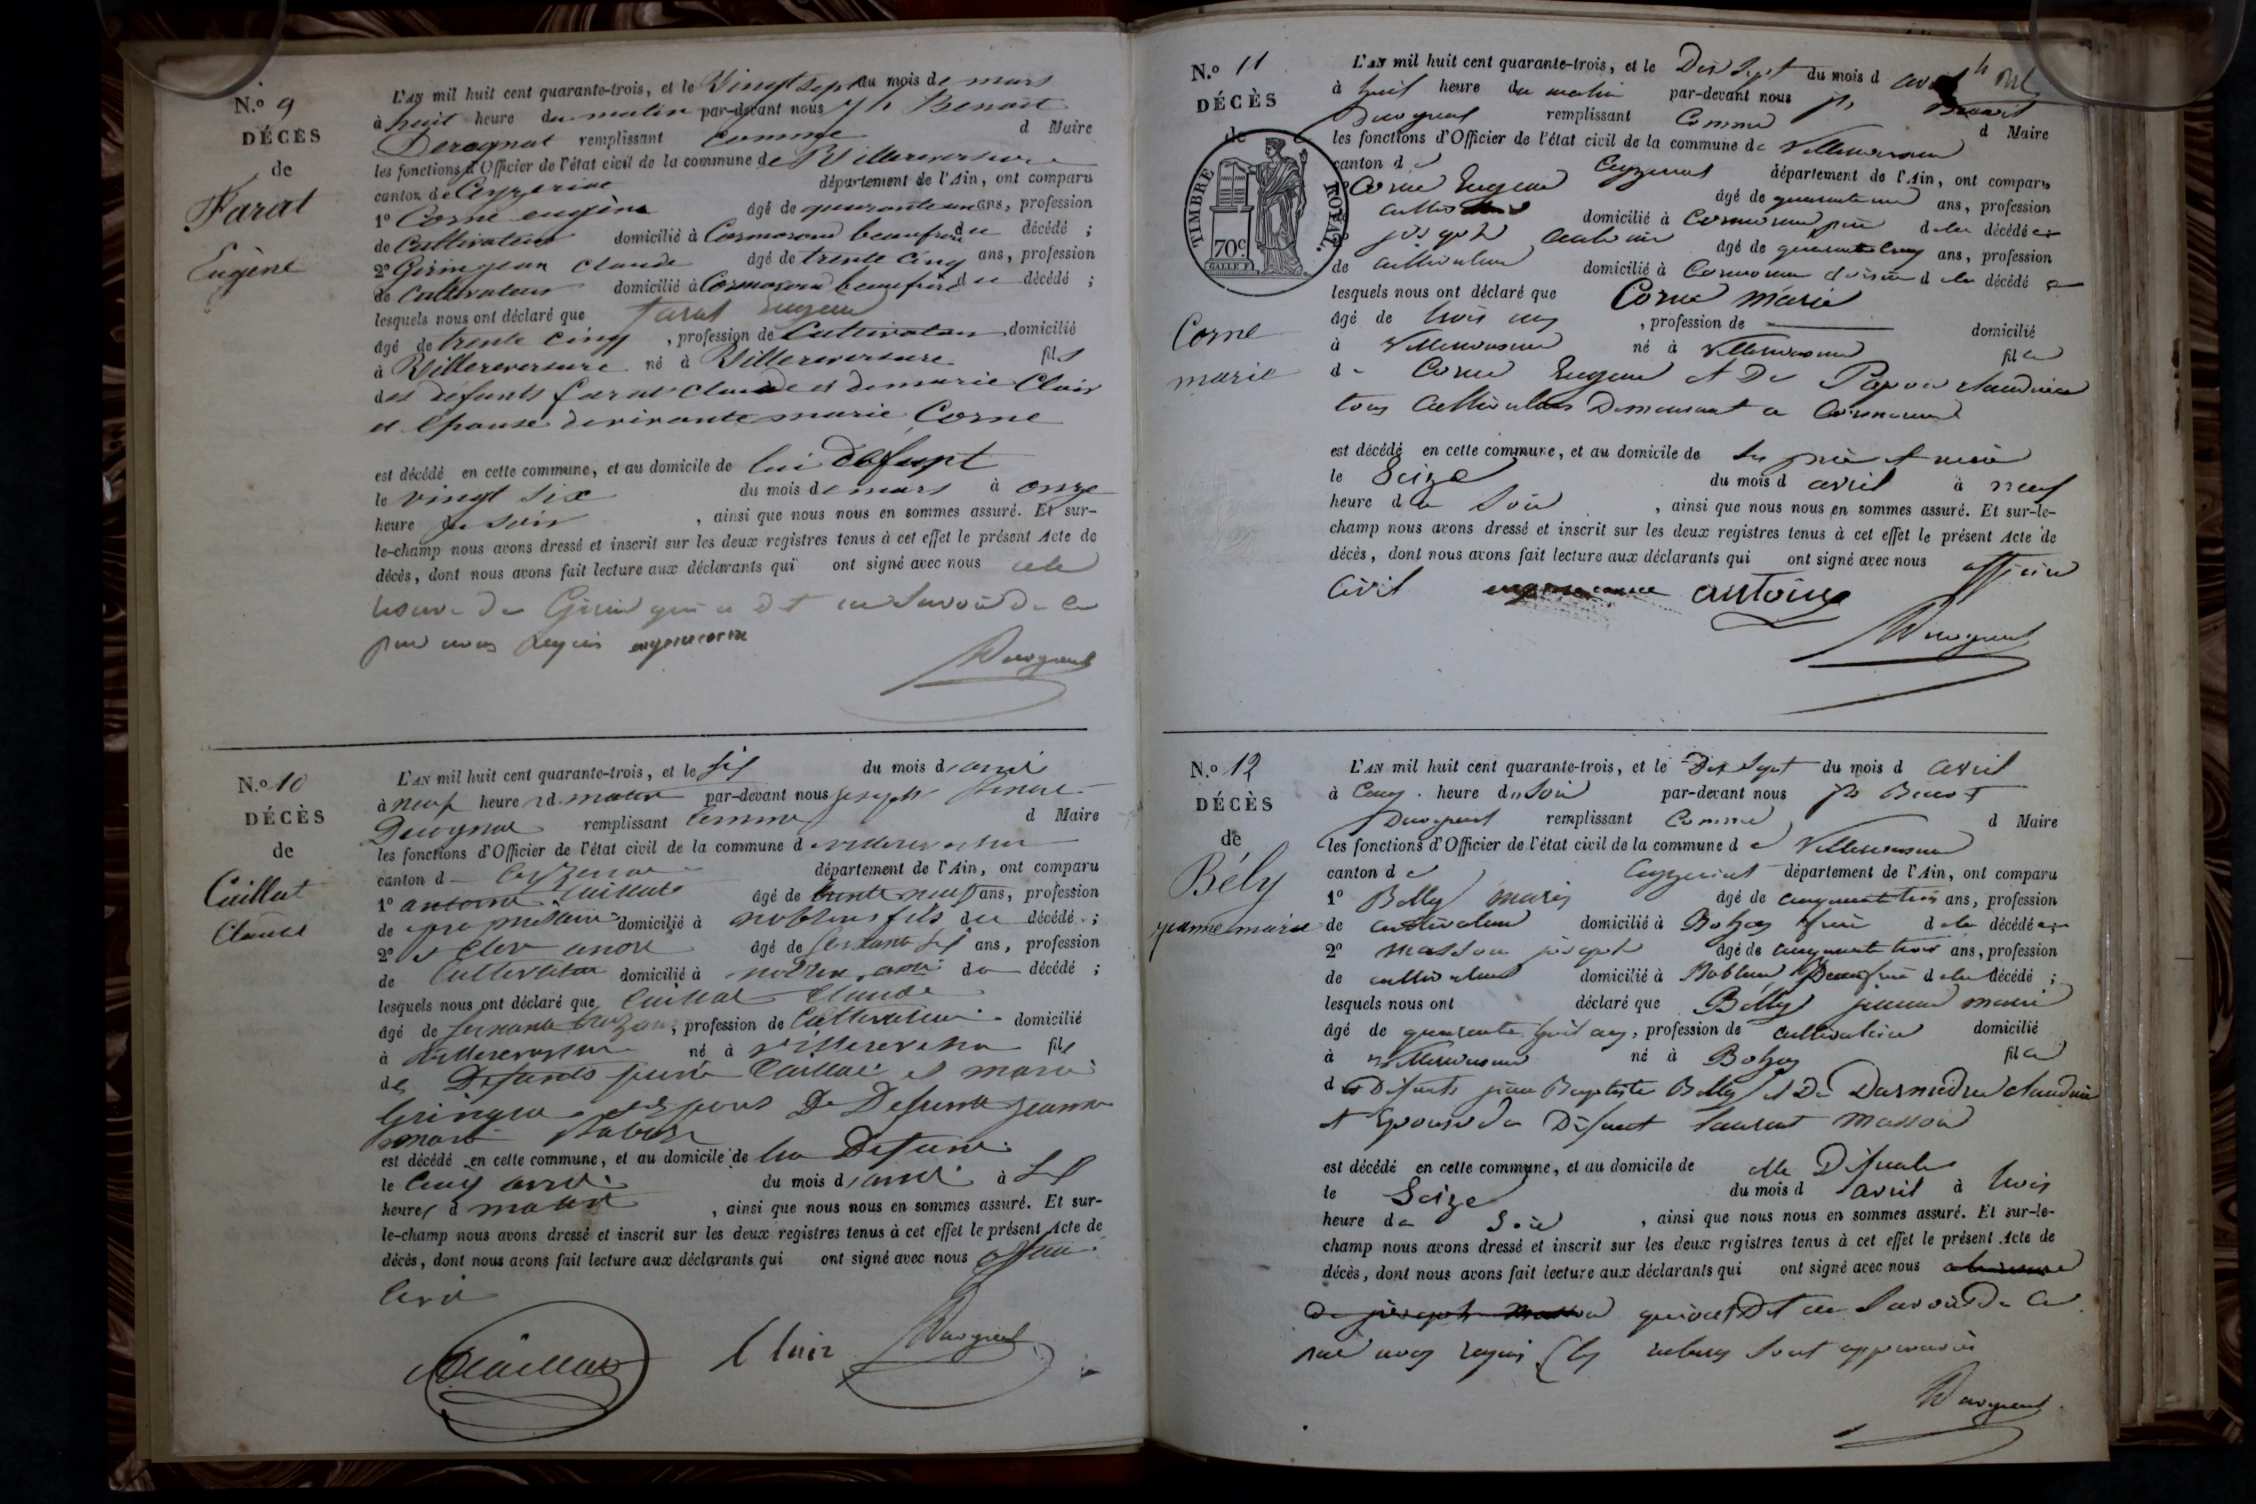 N.º 9
DÉCÈS
de
Farat
Eugène
L'AN mil huit cent quarante-trois, et le Vingt sept du mois de mars
à huit heure du matin par-devant nous Jh Benoit
Derognat remplissant comme d Maire
les fonctions d'Officier de l'état civil de la commune de Villereversure
canton de Ceyzeriat département de l'Ain, ont comparu
1º Corne eugène âgé de quarante un ans, profession
de Cultivateur domicilié à Cormorand beaufrère du décédé ;
2º Girin jean Claude âgé de trente cinq ans, profession
de Cultivateur domicilié à Cormorand beaufrère du décédé ;
lesquels nous ont déclaré que farat Eugene
âgé de trente cinq , profession de Cultivateur domicilié
à Villereversure né à Villereversure fils
des défunts farat Claude et de marie Clair
et Epouse de vivante marie Corne
est décédé en cette commune, et au domicile de lui défunt
le vingt six du mois de mars à onze
heure du soir , ainsi que nous nous en sommes assuré. Et sur-
le-champ nous avons dressé et inscrit sur les deux registres tenus à cet effet le présent Acte de
décès, dont nous avons fait lecture aux déclarants qui ont signé avec nous
de Girin qui a dit ne savoir de ce
par nous requis eugene corne
N.º 10
DÉCÈS
de
Caillat
Claude
L'AN mil huit cent quarante-trois, et le six du mois d avril
à neuf heure d matin par-devant nous joseph benoit
remplissant comme d Maire
les fonctions d'Officier de l'état civil de la commune d villereversure
canton d Ceyzeriat département de l'Ain, ont comparu
1º antoine Caillat âgé de trente neuf ans, profession
de propriétaire domicilié à noblens fils du décédé ;
2º Cler andre âgé de soixante six ans, profession
de Cultivateur domicilié à noblens ami du décédé ;
lesquels nous ont déclaré que Caillat Claude
âgé de soixante treize ans , profession de Cultivateur domicilié
à villereversure né à villereversure fils
des Défunts pierre Caillat et marie
Gringoz et Epoux De Defunte jeanne
marie
est décédé en cette commune, et au domicile de lui Defunt
le cinq avril du mois d avril à six
heures d matin , ainsi que nous nous en sommes assuré. Et sur-
le-champ nous avons dressé et inscrit sur les deux registres tenus à cet effet le présent Acte de
décès, dont nous avons fait lecture aux déclarants qui ont signé avec nous officier
civil
Caillat Clair
N.º 11
DÉCÈS
de
TIMBRE ROYAL.
70c
GALLE F.
Corne
marie
L'AN mil huit cent quarante-trois, et le Dix Sept du mois d avril
à huit heure du matin par-devant nous jh Benoit
Derognat remplissant Comme d Maire
les fonctions d'Officier de l'état civil de la commune de Villereversure
canton de Ceyzeriat département de l'Ain, ont comparu
1º Corne Eugene âgé de quarante un ans, profession
domicilié à Cormorand père de la décédée
2º âgé de quarante cinq ans, profession
de cultivateur domicilié à Cormorand voisin de la décédée
lesquels nous ont déclaré que Corne Marie
âgé de trois ans , profession de domicilié
à Villereversure né à Villereversure fille
de Corne Eugene et De Papon claudine
tous Cultivateurs Demeurant a Cormorand
est décédé en cette commune, et au domicile de ses père et mère
le Seize du mois d avril à neuf
heure du Soir , ainsi que nous nous en sommes assuré. Et sur-le-
champ nous avons dressé et inscrit sur les deux registres tenus à cet effet le présent Acte de
décès, dont nous avons fait lecture aux déclarants qui ont signé avec nous officier
civil eugene corne antoine
N.º 12
DÉCÈS
de
Bély
jeanne marie
L'AN mil huit cent quarante-trois, et le Dix Sept du mois d avril
à Cinq heure du Soir par-devant nous jh Benoit
Derognat remplissant Comme d Maire
les fonctions d'Officier de l'état civil de la commune de Villereversure
canton de Ceyzeriat département de l'Ain, ont comparu
1º Belly marie âgé de cinquante trois ans, profession
de cultivateur domicilié à Bohas frère de la décédée
2º Masson joseph âgé de cinquante trois ans, profession
de cultivateur domicilié à Noblens Beaufrère de la décédé ;
lesquels nous ont déclaré que Belly jeanne marie
âgé de quarante huit ans, profession de cultivatrice domicilié
à Villereversure né à Bohas fille
des Defunts jean Baptiste Belly et De Darnedru claudine
et Epouse du Défunt laurent Masson
est décédé en cette commune, et au domicile de elle Défunte
le Seize du mois d avril à trois
heure du Soir , ainsi que nous nous en sommes assuré. Et sur-le-
champ nous avons dressé et inscrit sur les deux registres tenus à cet effet le présent Acte de
décès, dont nous avons fait lecture aux déclarants qui ont signé avec nous
de joseph Masson qui ont Dit ne Savoir De ce
par nous requis les rebus sont approuvés